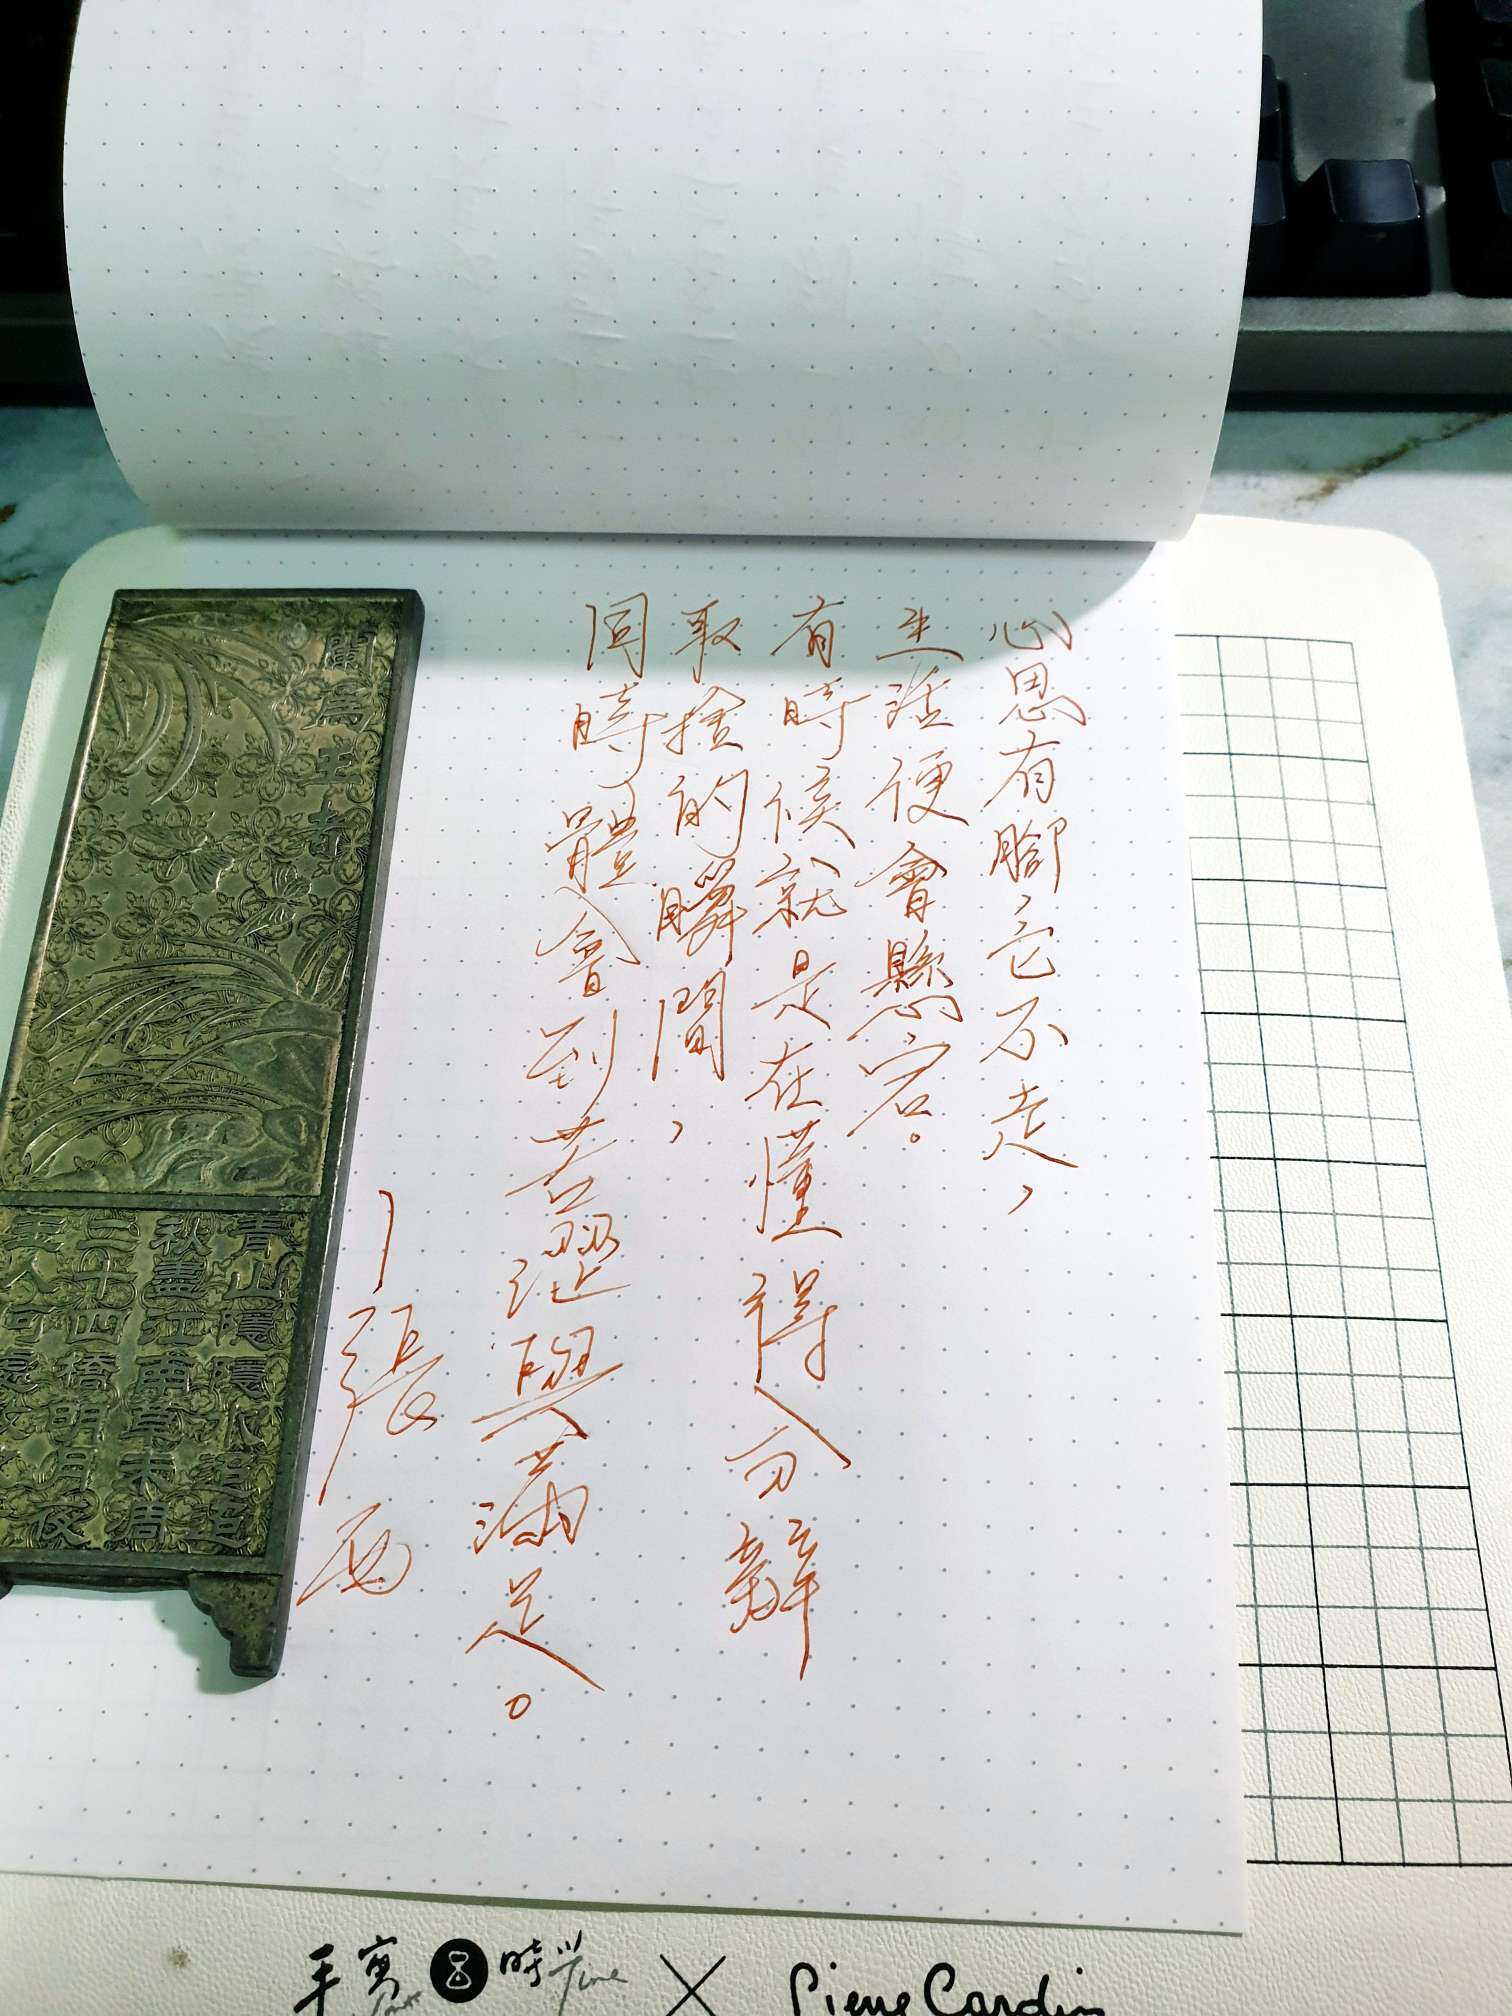 心思有腳，它不走，
生活便會懸宕。
有時候就是在懂得分辨
取捨的瞬間，
同時體會到苦澀與滿足。
—張西
蘭為王者
青山隱隱水迢迢
秋盡江南草未凋
二十四橋明月夜
玉人何處
手寫時光
Time
×
Pierre Cardin